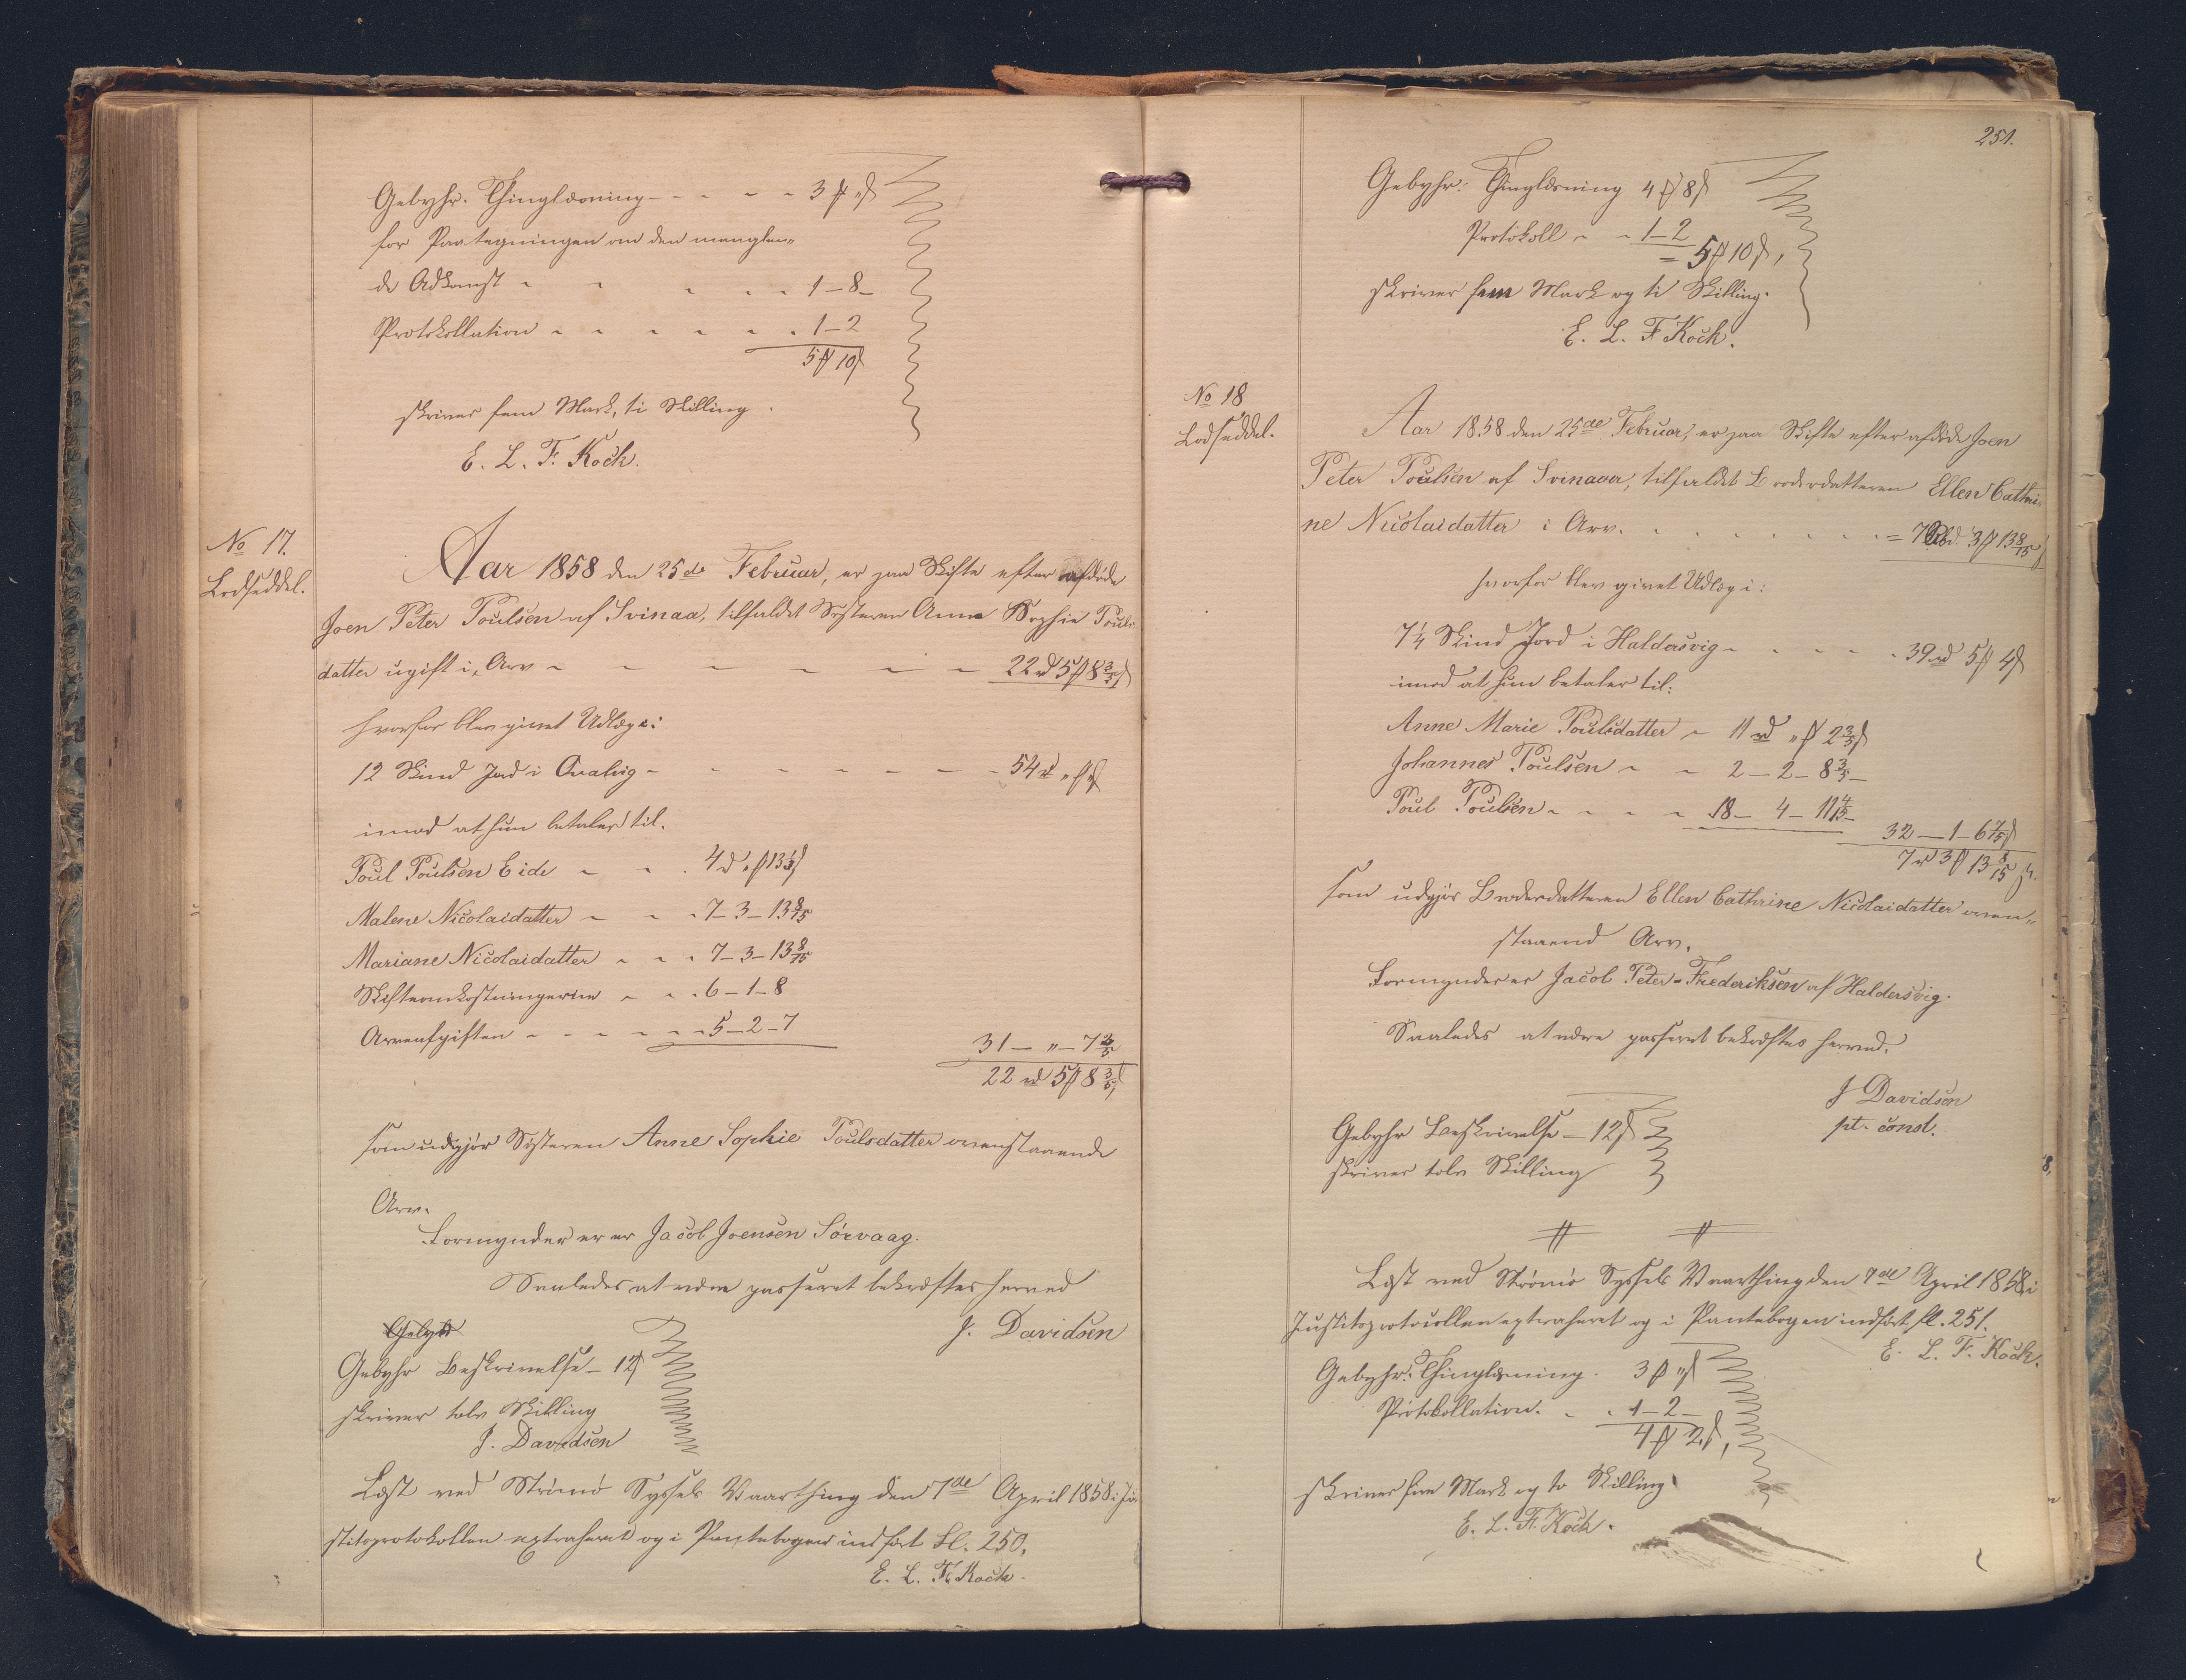 Gebyhr. Thinglæsning - - - - 3 ₻ „ ß
for Paategningen om den manglen„
de Adkomst - - - - - 1 – 8 –
Protokollation - - - - - - 1 – 2
5 ₻ 10 ß
skriver fem Mark, ti Skilling.
E. L. F. Koch.
No 17.
Lodseddel.
Aar 1858 den 25de Februar, er paa Skifte efter afdøde
Joen Peter Poulsen af Svinaa, tilfaldet Søsteren Anne Sophie Pouls
datter ugift i, Arv - - - - - - - 22 rd 5 ₻ 8 3/5 ß
hvorfor blev givet Udlæg i:
12 Skind Jord i Qvalvig - - - - - - - - 54 rd „ ₻ „ ß
imod at hun betaler til.
Poul Poulsen Eide - - - 4 rd „ ₻ 13 1/3 ß
Malene Nicolaidatter - - - 7 – 3 – 13 8/15
Mariane Nicolaidatter - - - 7 – 3 – 13 8/15
Skifteomkostningerne - - - 6 – 1 – 8
Arveafgiften - - - - - - 5 – 2 – 7
31 – „ – 7 2/5
22 rd 5 ₻ 8 3/5 ß
som udgjør Søsteren Anne Sophie Poulsdatter ovenstaaende
Arv.
Formynder er er Jacob Joensen Sørvaag.
Saaledes at være passeret bekræftes herved
J. Davidsen
Gebyh
Gebyhr Beskrivelse – 12 ß
skriver tolv Skilling
J. Davidsen
Læst ved Strømø Syssels Vaarthing den 7de April 1858 i Ju
stitsprotokollen extraheret og i Pantebogen indført Fl. 250,
E. L. F. Koch.
251.
Gebyhr: Thinglæsning 4 ₻ 8 ß
Protokoll - - 1 – 2
= 5 ₻ 10 ß,
skriver fem Mark og ti Skilling.
E. L. F. Koch.
No 18
Lodseddel.
Aar 1858 den 25de Februar, er paa Skifte efter afdøde Joen
Peter Poulsen af Svinaaer, tilfaldet Broderdatteren Ellen Cathri
ne Nicolaidatter i Arv. - - - - - - - = 7 Rbd. 3 ₻ 13 8/15 ß
hvorfor blev givet Udlæg i:
7 1/4 Skind Jord i Haldersvig - - - - - 39 rd 5 ₻ 4 ß
imod at hun betaler til:
Anne Marie Poulsdatter - 11 rd „ ₻ 2 2/5 ß
Johannes Poulsen - - 2 – 2 – 8 3/5 –
Poul Poulsen - - - - 18 – 4 – 11 4/15 –
32 – 1 – 6 7/15 ß
7 rd 3 ₻ 13 8/15 ß.
som udgjør Broderdatteren Ellen Cathrine Nicolaidatter oven„
staaend Arv.
Formynder er Jacob Peter Frederiksen af Haldersvig.
Saaledes at være passeret bekræftes herved.
J Davidsen
pt. const.
Gebyhr Beskrivelse – 12 ß
skriver tolv Skilling
Læst ved Strømø Syssels Vaarthing den 7de April 1858 i
Justitsprotocollen extraheret og i Pantebogen indført fl. 251.
E. L. F. Koch.
Gebyhr: Thinglæsning. 3 ₻ „ ß
Protokollation. - - 1 – 2 –
4 ₻ 2 ß,
skriver fire Mark og to Skilling
E. L. F. Koch.